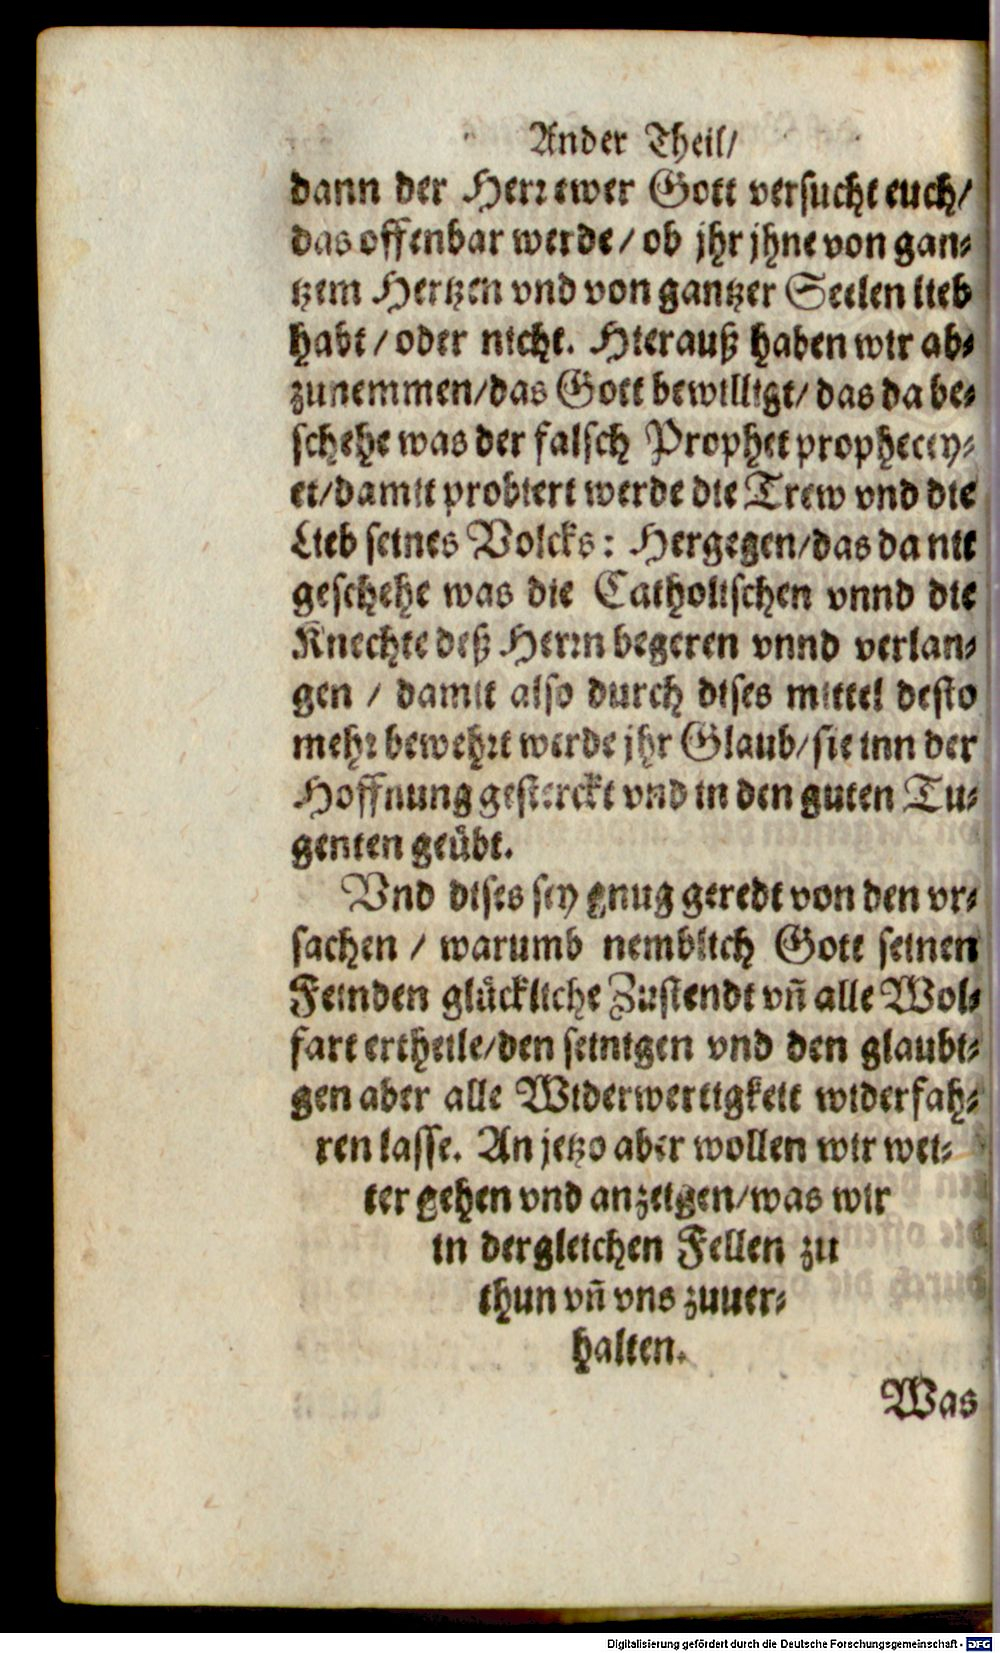 Ander Theil/
dann der Herr ewer Gott versucht euch/
das offenbar werde / ob jhr jhne von gan-
tzem Hertzen vnd von gantzer Seelen lieb
habt / oder nicht. Hierauß haben wir ab-
zunemmen/das Gott bewilligt/ das da be-
schehe was der falsch Prophet prophecey-
et/damit probiert werde die Trew vnd die
Lieb seines Volcks: Hergegen/das da nit
geschehe was die Catholischen vnnd die
Knechte deß Herrn begeren vnnd verlan-
gen / damit also durch dises mittel desto
mehr bewehrt werde jhr Glaub/sie inn der
Hoffnung gesterckt vnd in den guten Tu-
genten geübt.
Vnd dises sey gnug geredt von den vr-
sachen / warumb nemblich Gott seinen
Feinden glückliche Zustendt vñ alle Wol-
fart ertheile/den seinigen vnd den glaubi-
gen aber alle Widerwertigkeit widerfah-
ren lasse. An jetzo aber wollen wir wei-
ter gehen vnd anzeigen/was wir
in dergleichen Fellen zu
thun vñ vns zuuer-
halten.
Was
Digitalisierung gefördert durch die Deutsche Forschungsgemeinschaft - DFG